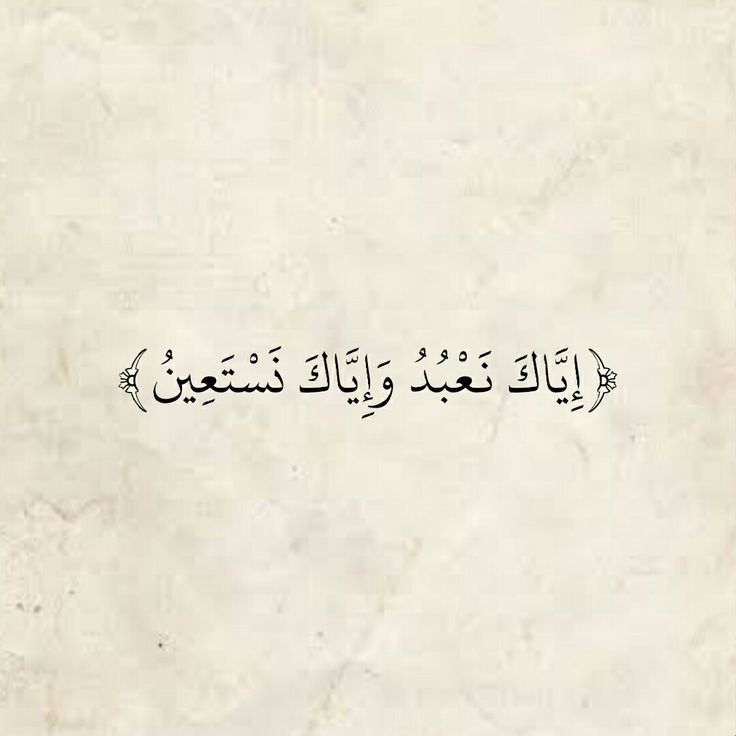 ﴿ إِيَّاكَ نَعْبُدُ وَإِيَّاكَ نَسْتَعِينُ ﴾